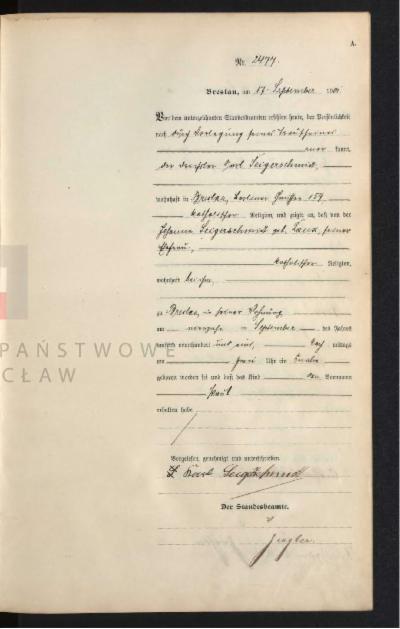 A.
Nr. 2477.
Breslau, am 17. September 1901
Vor dem unterzeichneten Standesbeamten erschien heute, der Persönlichkeit
nach durch Vorlegung seines Trauscheines
kannt,
der Drechsler Karl Geigerschmidt,
wohnhaft in Breslau, Berliner Chaussee 159,
katholischer Religion, und zeigte an, daß von der
Johanna Geigerschmidt geb. seiner
Ehefrau,
katholischer Religion,
wohnhaft bei ihm,
zu Breslau, in seiner Wohnung
am September des Jahres
tausend neunhundert und eins, Nachmittags
um Uhr ein Knabe
geboren worden sei und daß das Kind den Vornamen
Paul
erhalten habe.
Vorgelesen, genehmigt und unterschrieben.
Karl Geigerschmidt
Der Standesbeamte.
Ziegler.
PAŃSTWOWE
CŁAW